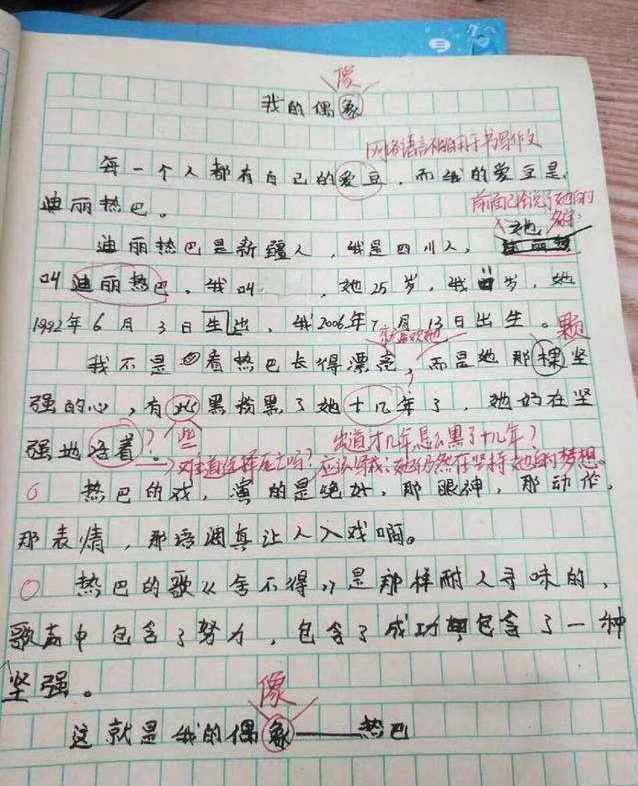 像
我的偶象
网络语言不能用于书写作文
每一个人都有自己的爱豆，而我的爱豆是
前面已经说了她的
名字
迪丽热巴。
她
迪丽热巴是新疆人，我是四川人，
叫迪丽热巴，我叫，她25岁，我岁，她
1992年6月3日生出，我2006年7月13日出生。
就喜欢她
颗
我不是看热巴长得漂亮，而是她那棵坚
强的心，有此黑粉黑了她十几年了，她好在坚
些
出道才几年怎么黑了十几年？
强地活着。
？
难道选择死亡吗？应该写成：她仍然在坚持她的梦想。
热巴的戏，演的是绝好，那眼神，那动作，
那表情，那语调真让人入戏啊。
热巴的歌《舍不得》是那样耐人寻味的，
歌声中包含了努力，包含了成功包含了一种
坚强。
像
这就是我的偶象——热巴